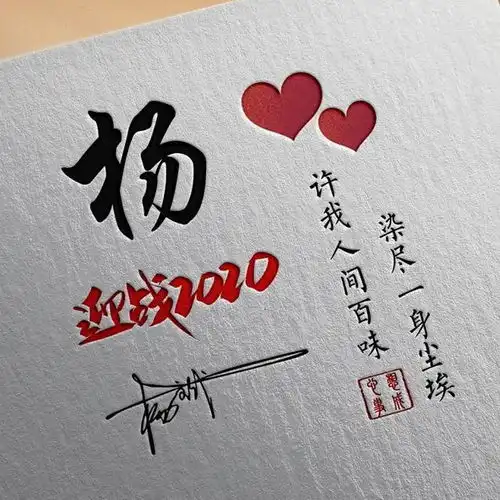 杨
迎战2020
染尽一身尘埃
许我人间百味